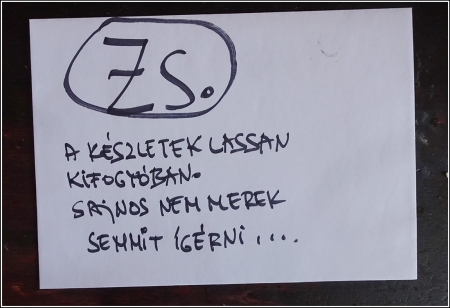 ZS.
A KÉSZLETEK LASSAN
KIFOGYÓBAN.
SAJNOS NEM MEREK
SEMMIT ÍGÉRNI ....